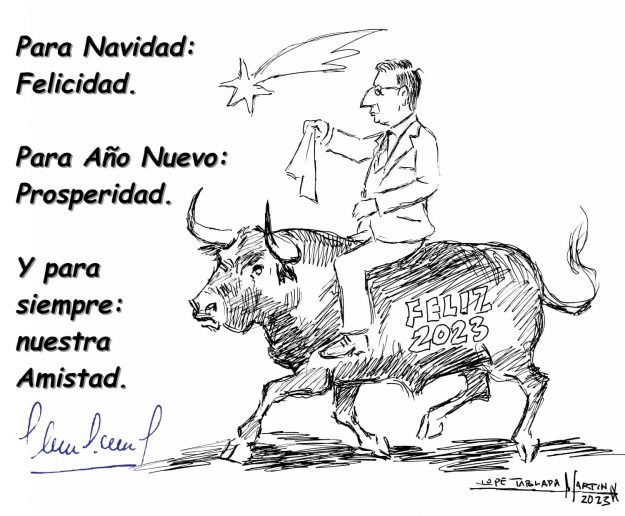 Para Navidad:
Felicidad.
Para Año Nuevo:
Prosperidad.
Y para
siempre:
nuestra
Amistad.
FELIZ
2023
LOPE TABLADA MARTIN
2023